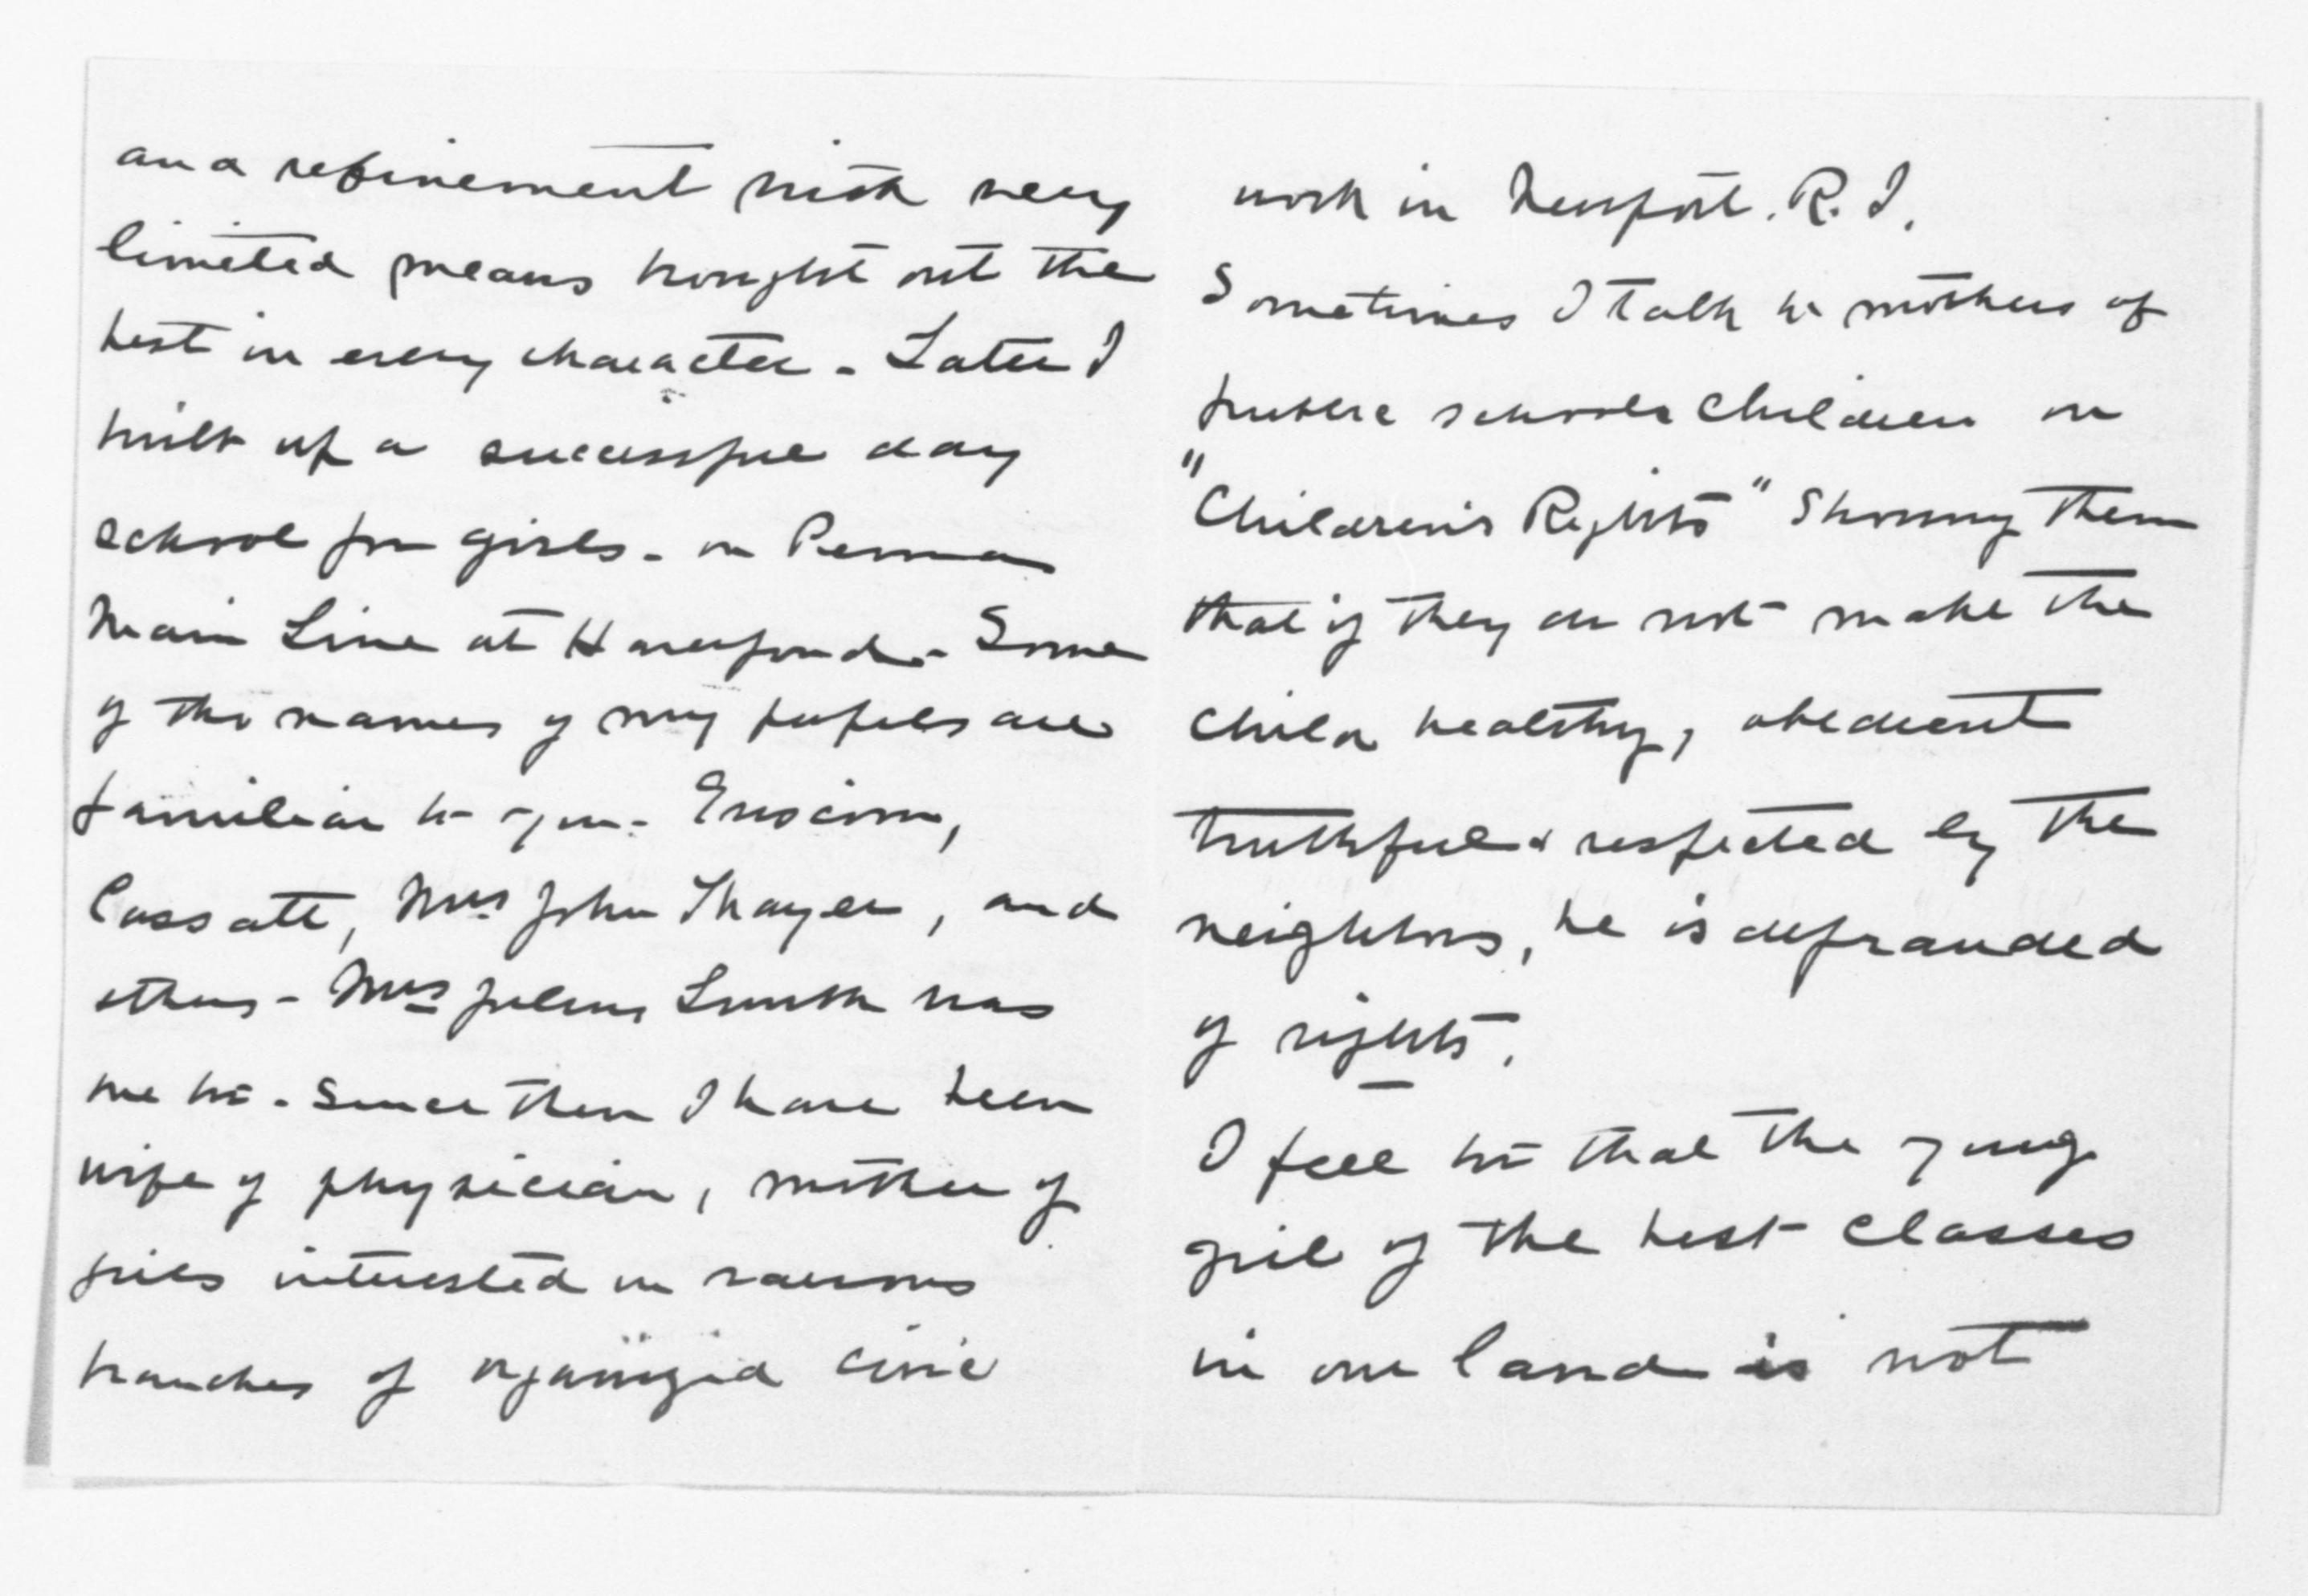 and refinement with very
limited means brought out the
best in every character - Later I
built up a successful day
school for girls - on Penna
Main Line at Haverford - Some
of the names of my pupils are
familiar to you - Griscom,
Cassatt, Mrs John Thayer, and
others - Mrs Julius Smith was
me too - Since then I have been
wife of physician, mother of
girls interested in various
branches of organized civic
work in Newport. R. I.
Sometimes I talk to mothers of
public schools children on
"Children's Rights" Showing them
that if they do not make the
child healthy, obedient
truthful & respected by the
neighbors, he is defrauded
of rights.
I feel too that the young
girl of the best classes
in our land is not